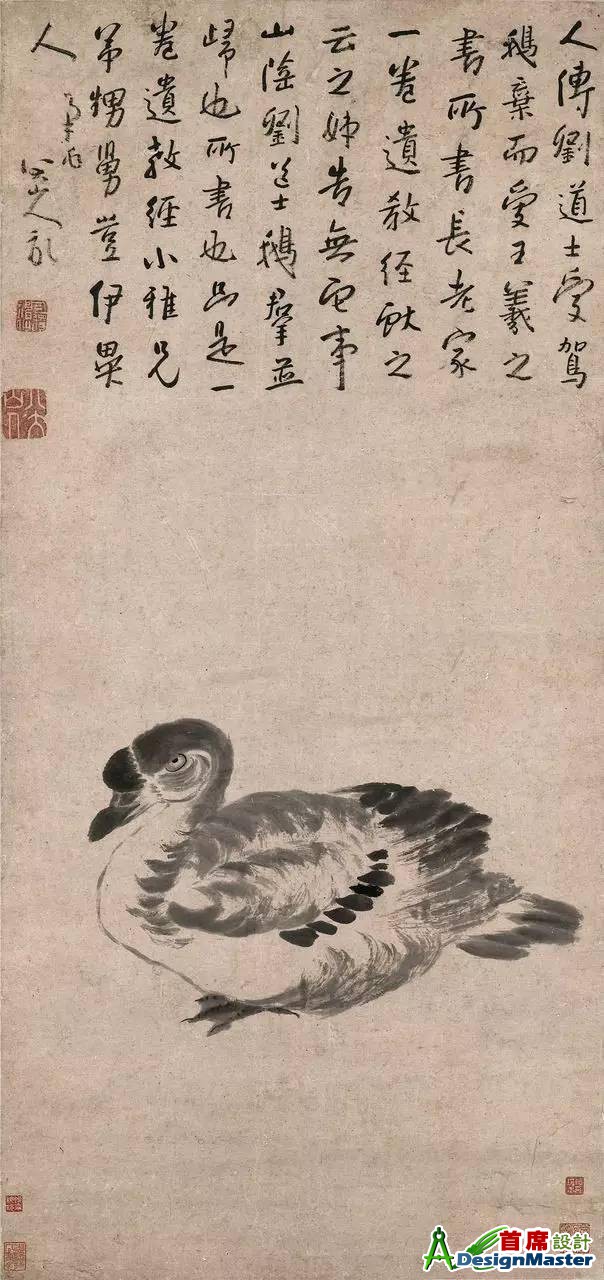 人傳劉道士愛駕
鵝棄而愛王羲之
書所書長老家
一卷遺教經獻之
云之姊告無它事
山陰劉道士鵝群並
歸也所書也只是一
卷遺教經小雅兄
弟甥舅豈伊異
人
八大山人
首席設計
DesignMaster